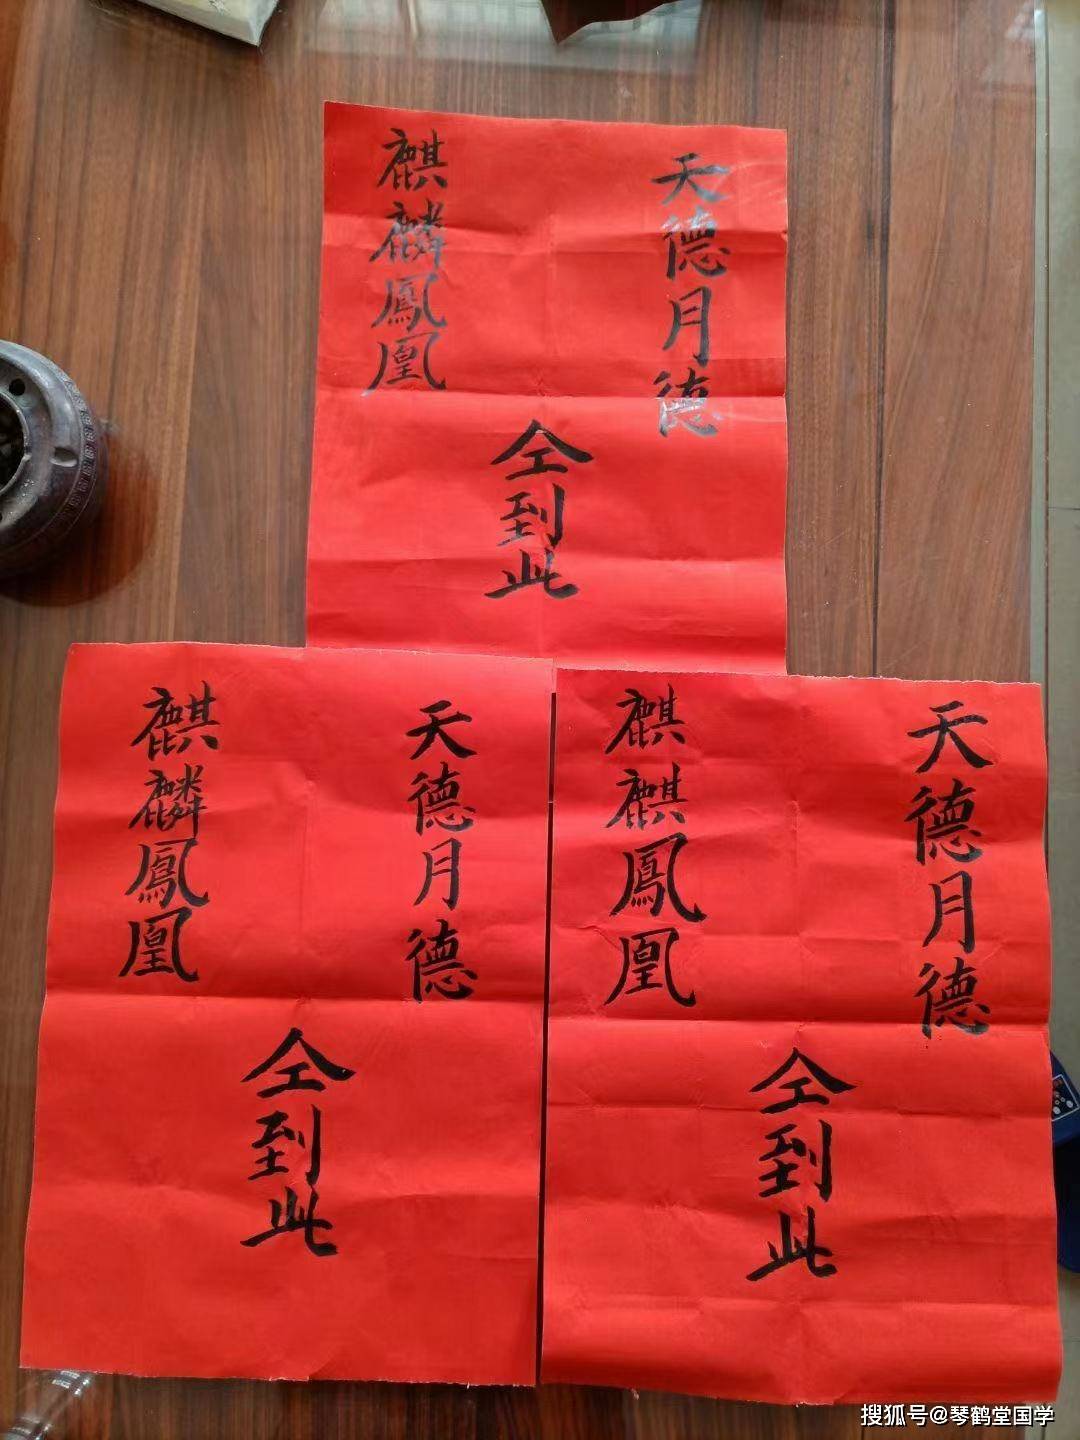 天德月德
麒麟鳳凰
仝到此
天德月德
麒麟鳳凰
仝到此
天德月德
麒麒鳳凰
仝到此
搜狐号@琴鹤堂国学